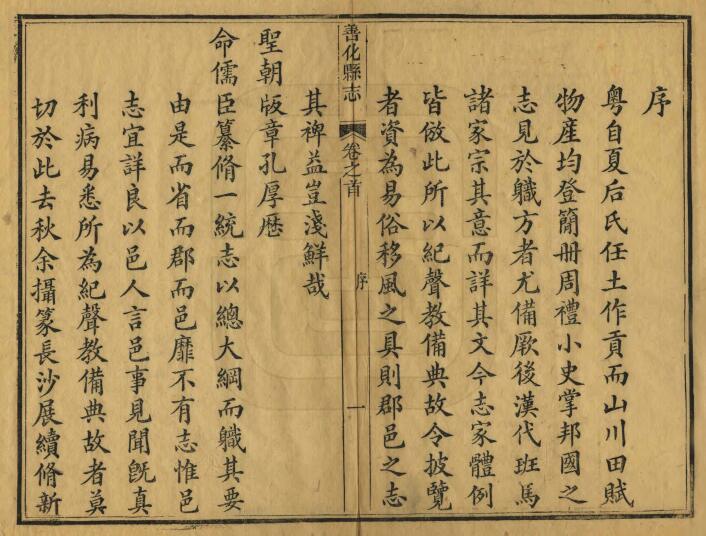 序
粵自夏后氏任土作貢而山川田賦
物產均登簡冊周禮小史掌邦國之
志見於職方者尤備厥後漢代班馬
諸家宗其意而詳其文今志家體例
皆倣此所以紀聲教備典故令披覽
者資為易俗移風之具則郡邑之志
善化縣志
卷之首
序
一
其裨益豈淺鮮哉
聖朝版章孔厚歷
命儒臣纂脩一統志以總大綱而職其要
由是而省而郡而邑靡不有志惟邑
志宜詳良以邑人言邑事見聞旣真
利病易悉所為紀聲教備典故者莫
切於此去秋余攝篆長沙展續脩新